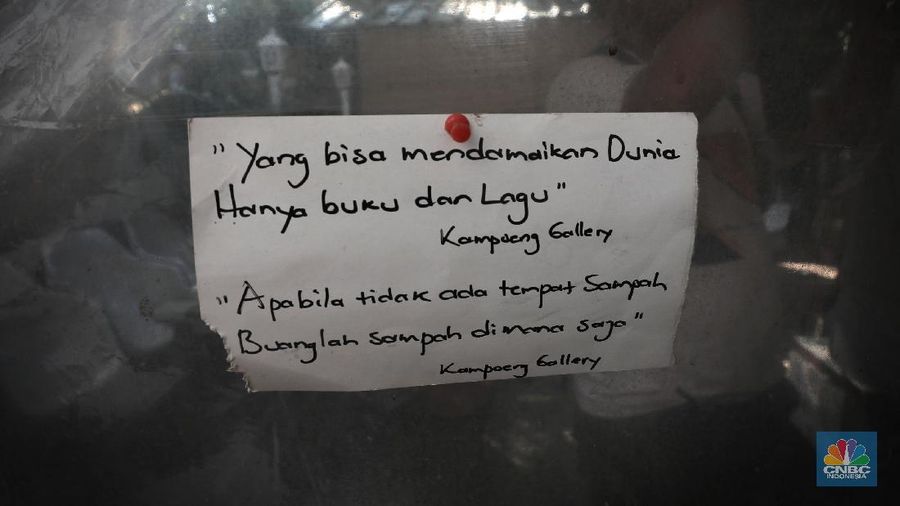 "Yang bisa mendamaikan Dunia
Hanya buku dan Lagu"
Kampoeng Gallery
"Apabila tidak ada tempat Sampah
Buanglah sampah dimana saja"
Kampoeng Gallery
CNBC
INDONESIA